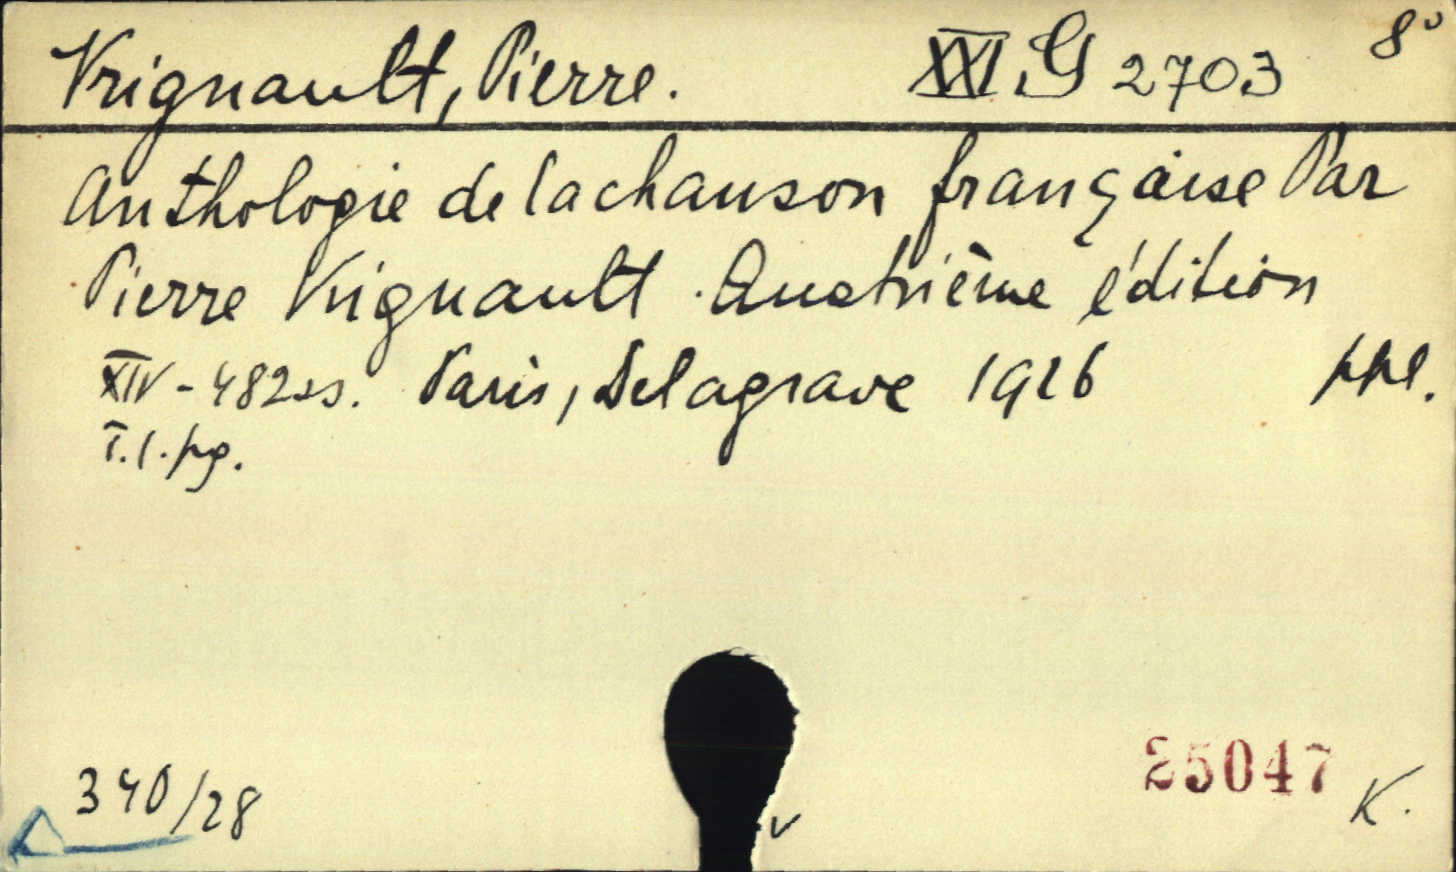 Vrignault, Pierre. XXI G 2703 8°
Anthologie de la chanson française Par
Pierre Vrignault. Quatrième édition
XIV - 482 ss. Paris, Delagrave 1926 ppl.
T.1. pg.
340/28
25047
K.
v